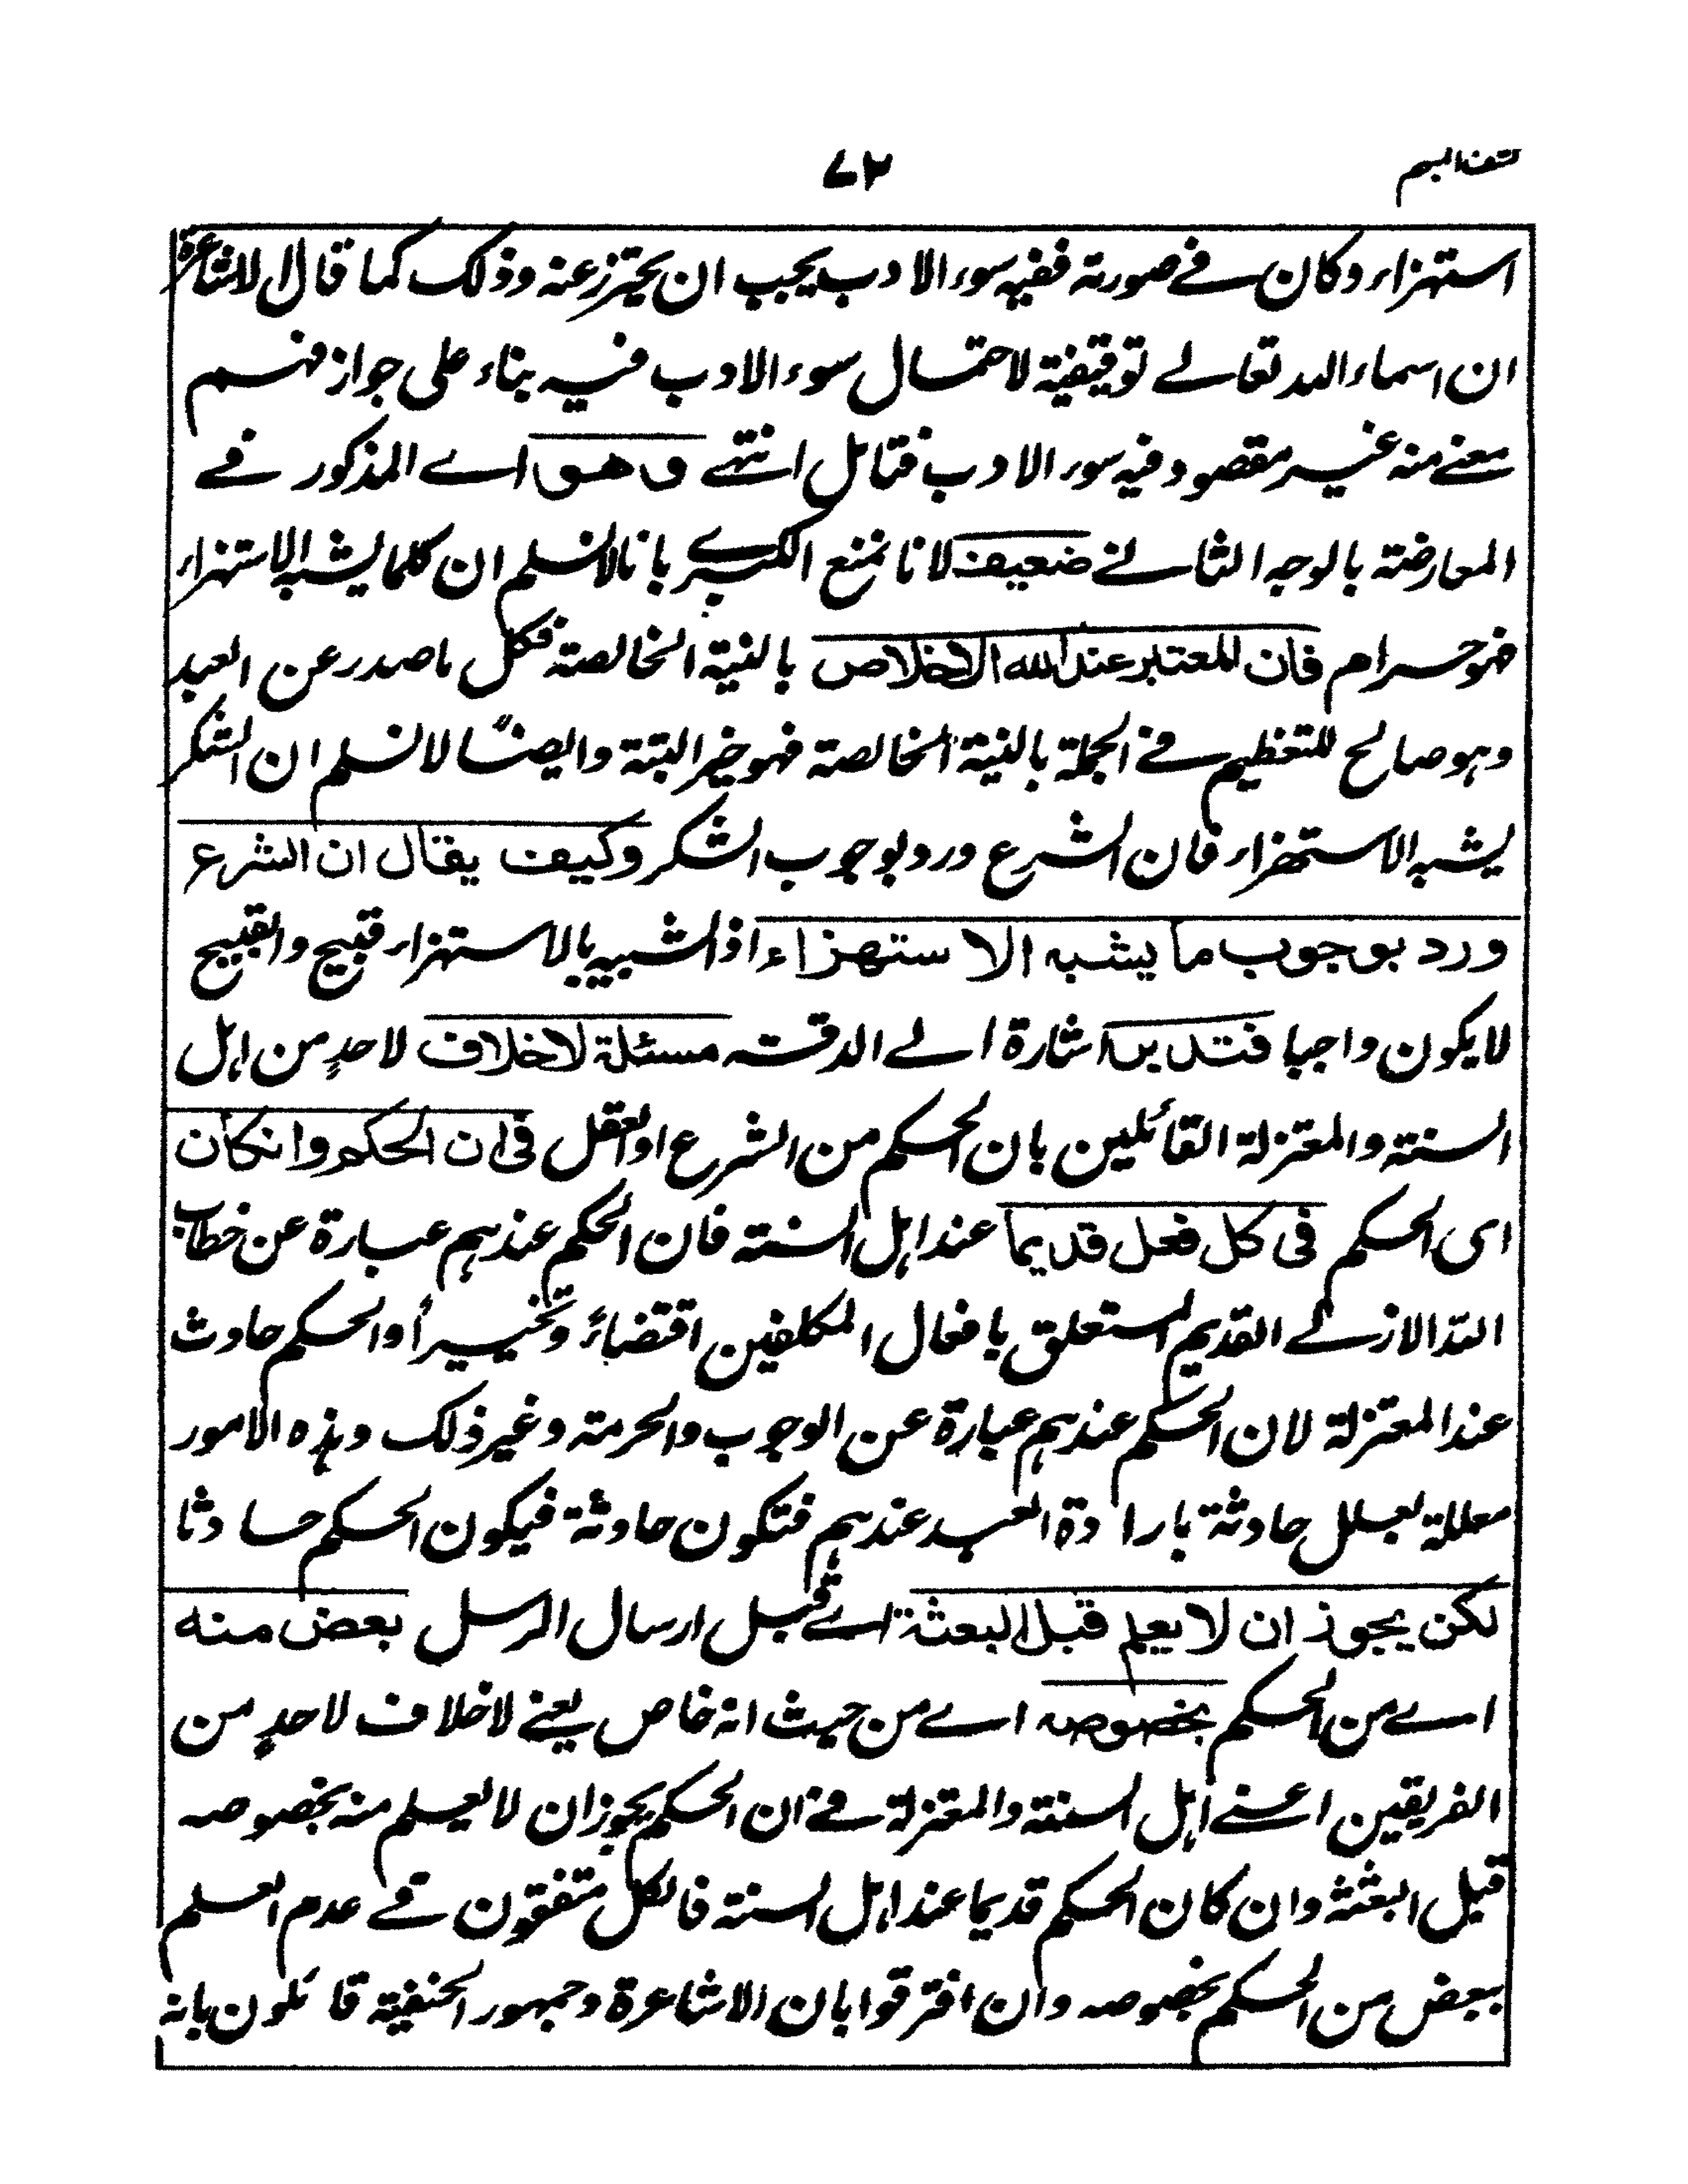 ۷۲
استهزاء وكان في صورته ففيه سوء الادب يجب ان يحترز عنه وذلك كما قال الاشاعرة
ان اسماء الله تعالى توقيفية لاحتمال سوء الادب فيه بناء على جواز فهم
معنى منه غير مقصود وفيه سوء الادب فتامل انتهى وهو اے المذكور في
المعارضة بالوجه الثاني ضعيف لانا نمنع الكبرى بانا لا نسلم ان كلما يشبه الاستهزاء
فهو حرام فان المعتبر عند الله الاخلاص بالنية الخالصة فكل ما صدر عن العبد
وهو صالح للتعظيم في الجملة بالنية الخالصة فهو خير البتة وايضًا لا نسلم ان الشكر
يشبه الاستهزاء فان الشرع ورد بوجوب الشكر وكيف يقال ان الشرع
ورد بوجوب ما يشبه الاستهزاء اذ الشبيه بالاستهزاء قبيح والقبيح
لا يكون واجبا فتدبر اشارة الى الدقة مسئلة لا خلاف لاحدٍ من اهل
السنة والمعتزلة القائلين بان الحكم من الشرع او العقل فى ان الحكم وانكان
اى الحكم فى كل فعل قديما عند اهل السنة فان الحكم عندهم عبارة عن خطاب
الله الازلي القديم المتعلق بافعال المكلفين اقتضاءً وتخييراً والحكم حادث
عند المعتزلة لان الحكم عندهم عبارة عن الوجوب والحرمة وغير ذلك وهذه الامور
معللة بعلل حادثة بارادة العبد عندهم فتكون حادثة فيكون الحكم حادثا
لكن يجوز ان لا يعلم قبل البعثة اے قبل ارسال الرسل بعض منه
اے من الحكم بخصوصه اے من حيث انه خاص يعني لا خلاف لاحدٍ من
الفريقين اعني اهل السنة والمعتزلة في ان الحكم يجوز ان لا يعلم منه بخصوصه
قبل البعثة وان كان الحكم قديما عند اهل السنة فالكل متفقون في عدم العلم
ببعض من الحكم بخصوصه وان افترقوا بان الاشاعرة وجمهور الحنفية قائلون بانه